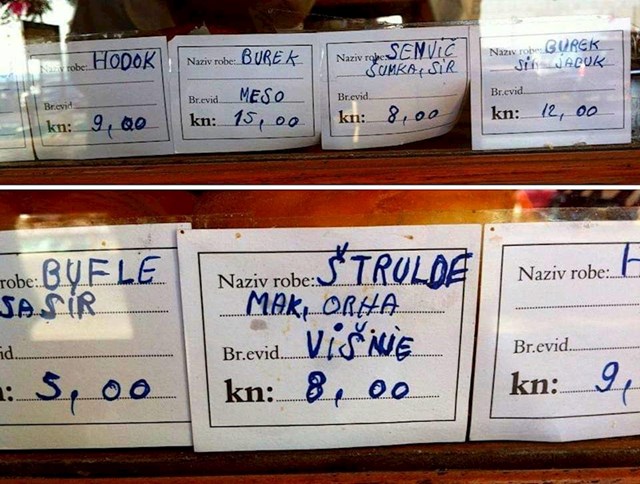 robe: HODOK
Br.evid
kn: 9,00
Naziv robe: BUREK
Br.evid MESO
kn: 15,00
Naziv robe: SENVIČ
ŠUMKA, SIR
Br.evid
kn: 8,00
Naziv robe: BUREK
SIR JABUK
Br.evid
kn: 12,00
robe: BUFLE
SA SIR
id.
: 5,00
Naziv robe: ŠTRULDE
MAK, ORHA
Br.evid. VIŠNIE
kn: 8,00
Naziv robe: H
Br.evid.
kn: 9,